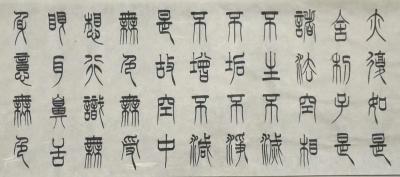 亦復如是
舍利子是
諸法空相
不生不滅
不垢不淨
不增不減
是故空中
無色無受
想行識無
眼耳鼻舌
身意無色